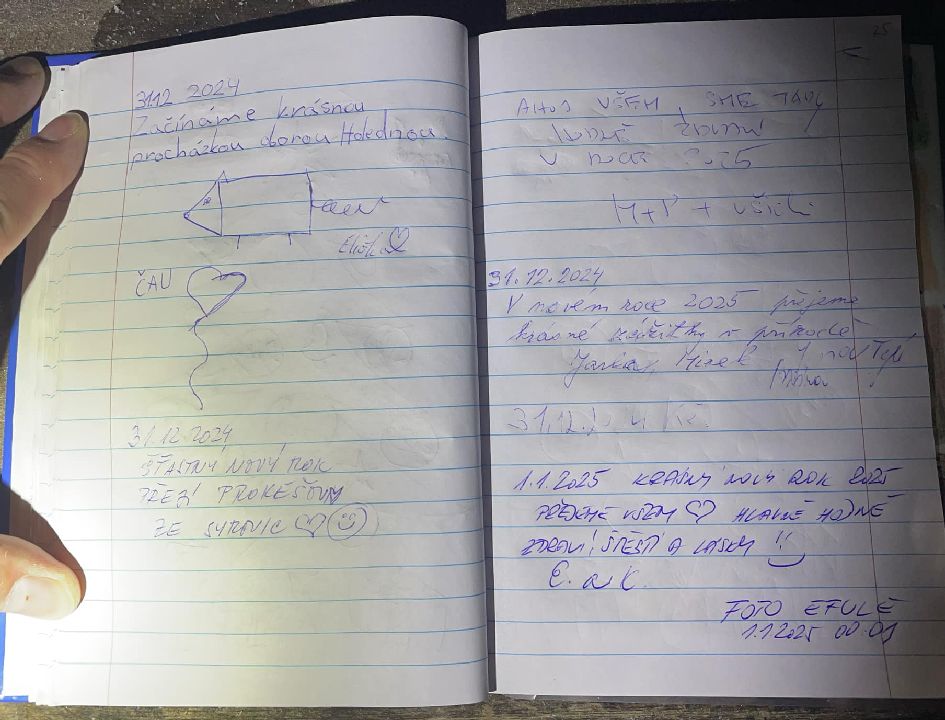 31.12 2024
Začínáme krásnou
procházkou oborou Holednou.
ČAU
31.12.2024
ŠŤASTNÝ NOVÝ ROK
PŘEJÍ PROKEŠOVI
ZE SYROVIC ♡ ☺
25
AHOJ VŠEM, SME TADY
HODNĚ ZDRAVÍ
V ROCE 2025
M+P + VŠICHNI
31.12.2024
V novém roce 2025 přejeme
krásné zážitky v přírodě
Jarka, Mirek
31.12.
1.1.2025 KRÁSNÝ NOVÝ ROK 2025
PŘEJEME VŠEM ♡ HLAVNĚ HODNĚ
ZDRAVÍ, ŠTĚSTÍ A LÁSKY !!
E. a K.
FOTO EFULE
1.1.2025 00:01